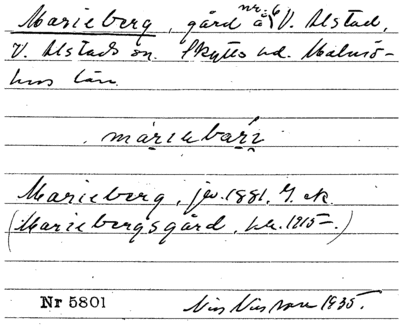 Marieberg, gård nr. 6 å V. Alstad,
V. Alstads sn. Skytts hd. Malmö-
hus län.
Marieberg, jev. 1881. G. ek.
(Mariebergsgård, 1915-.)
Nr 5801 Nils Nilsson 1935.